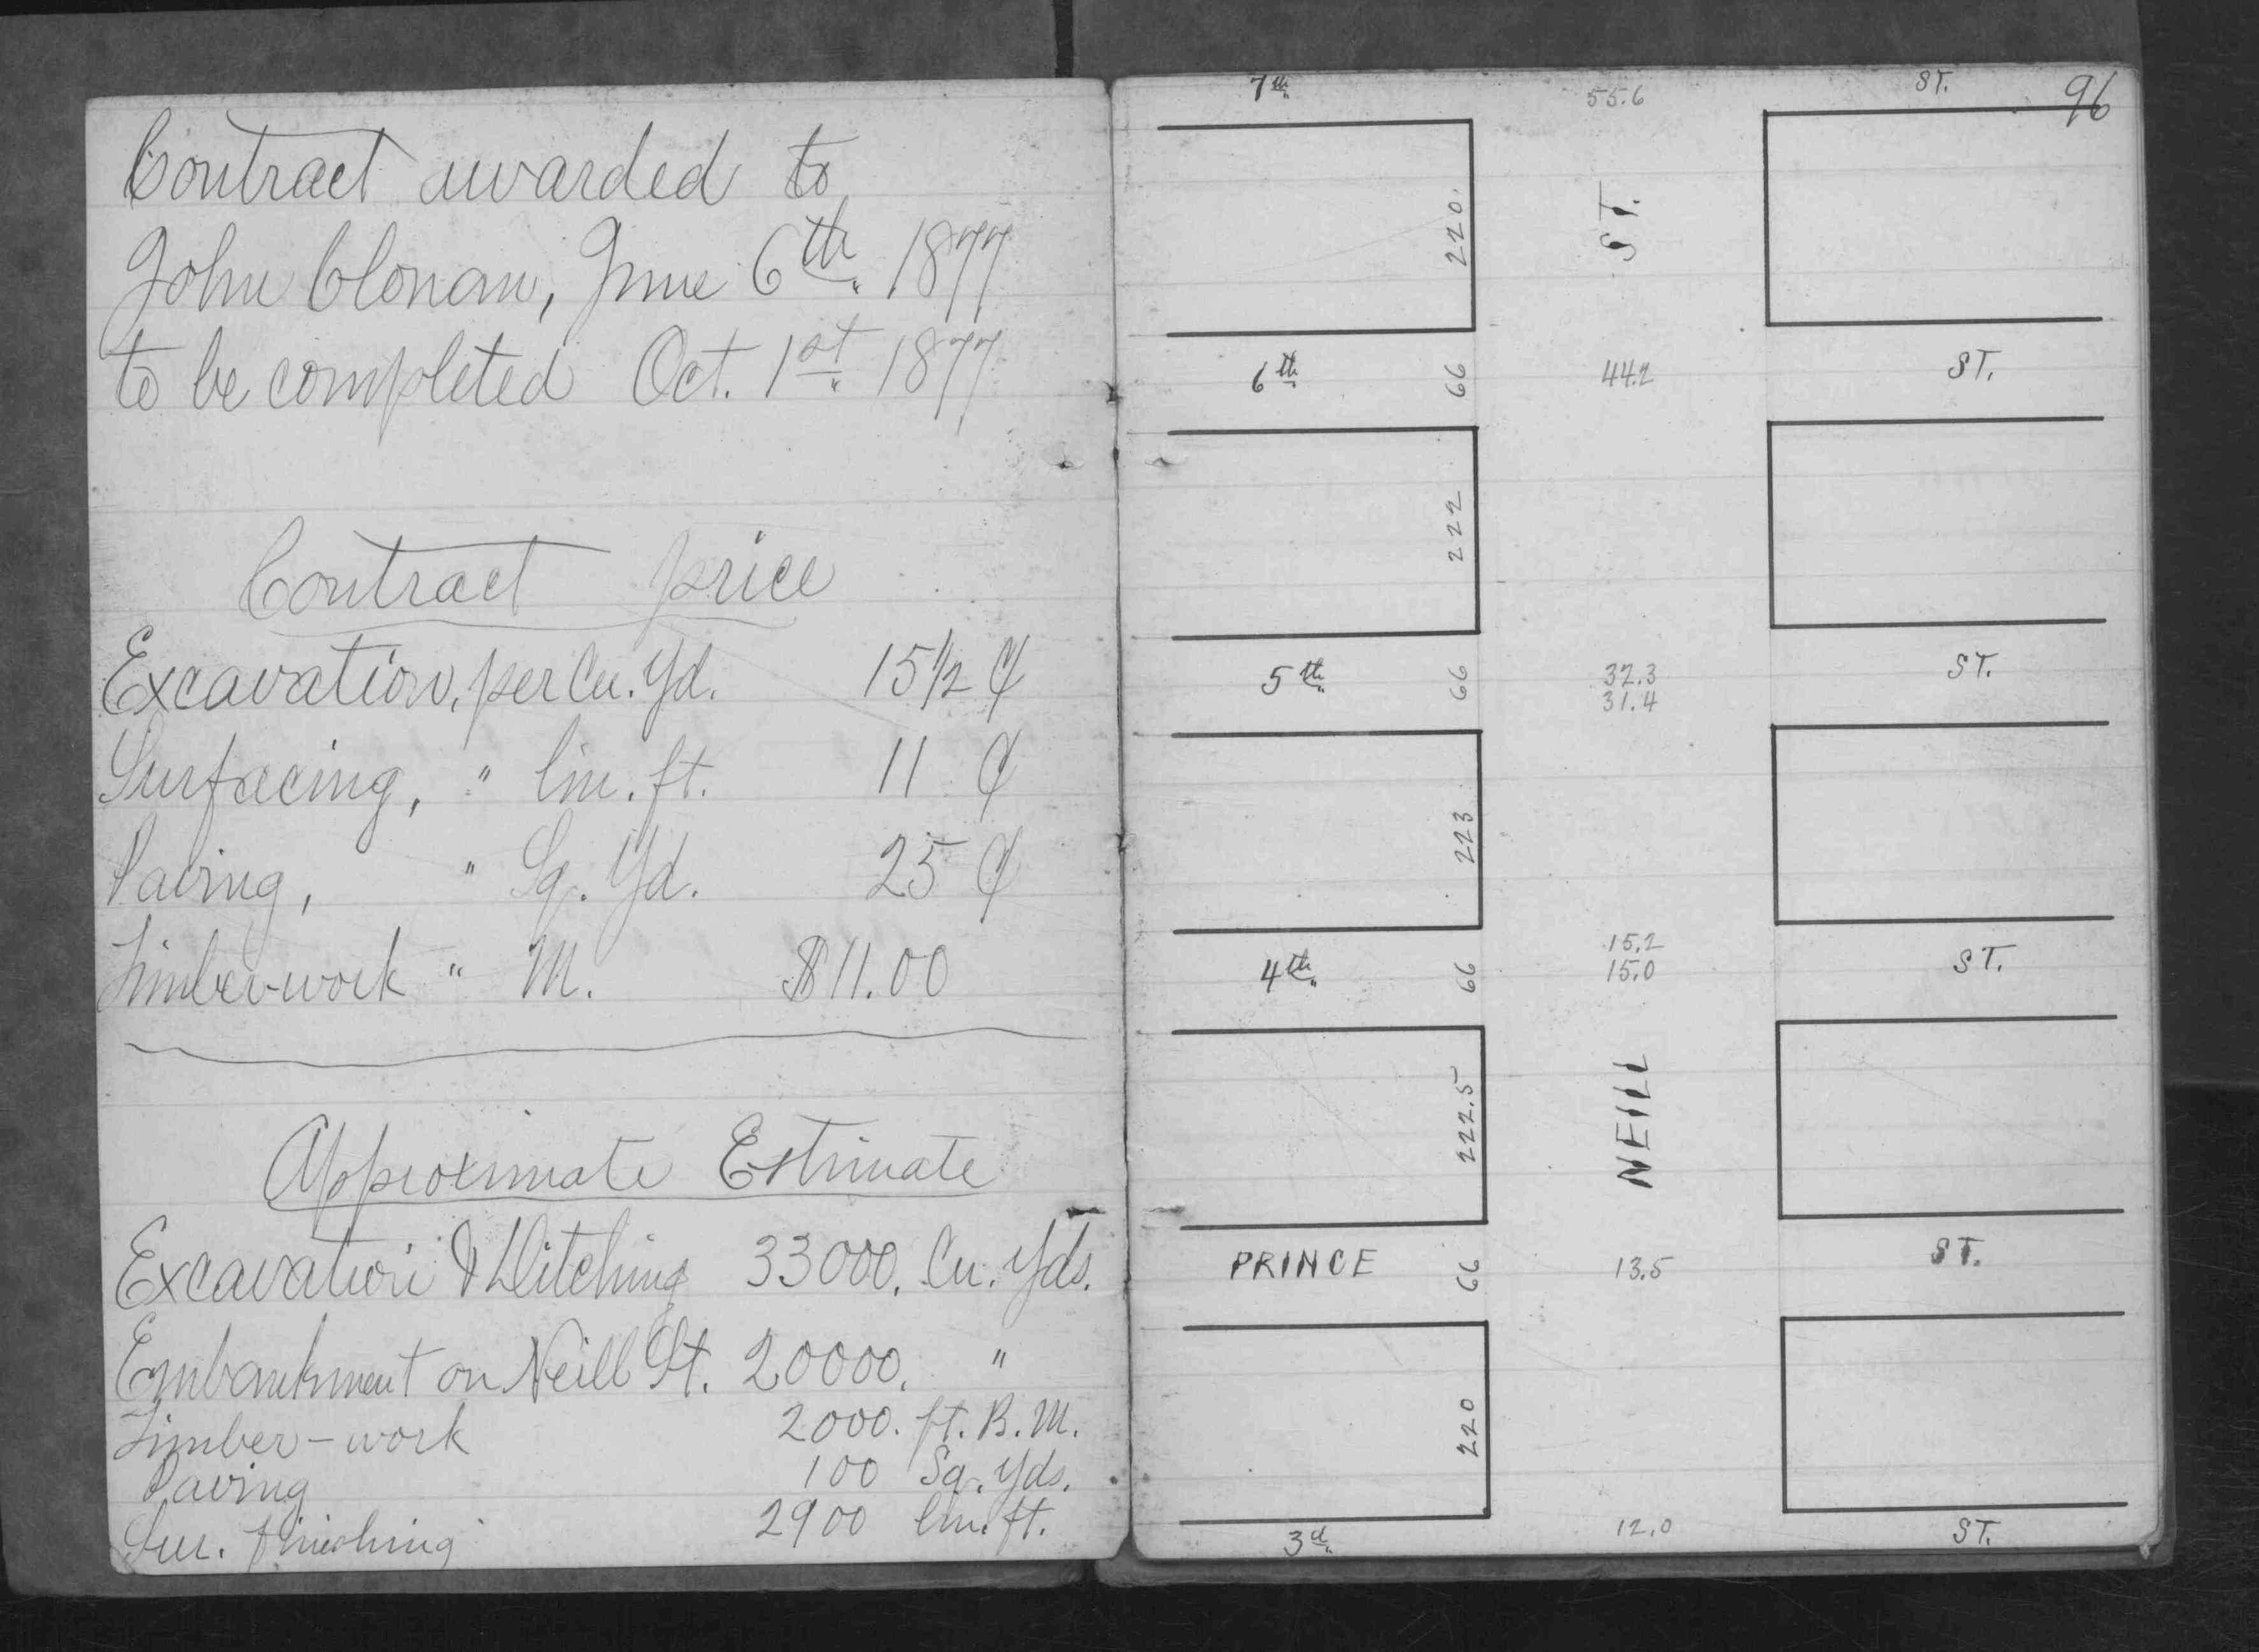 Contract awarded to
John Clonan, June 6th. 1877
to be completed Oct. 1st. 1877
Contract price
Excavation, per Cu. Yd. 15 1/2 ¢
Surfacing, " lin. ft. 11 ¢
Paving, " Sq. Yd. 25 ¢
Timber-work " M. $11.00
Approximate Estimate
Excavation & Ditching 33000. Cu. Yds.
Embankment on Neill St. 20000. "
Timber-work 2000. ft. B. M.
Paving 100 Sq. Yds.
Sur. finishing 2900 lin. ft.
96
7th. 55.6 ST.
220.
ST.
6th. 66 44.2 ST.
222
5th. 66 32.3 ST.
31.4
223
15.2
4th. 66 15.0 ST.
222.5
NEILL
PRINCE 66 13.5 ST.
220
3d. 12.0 ST.